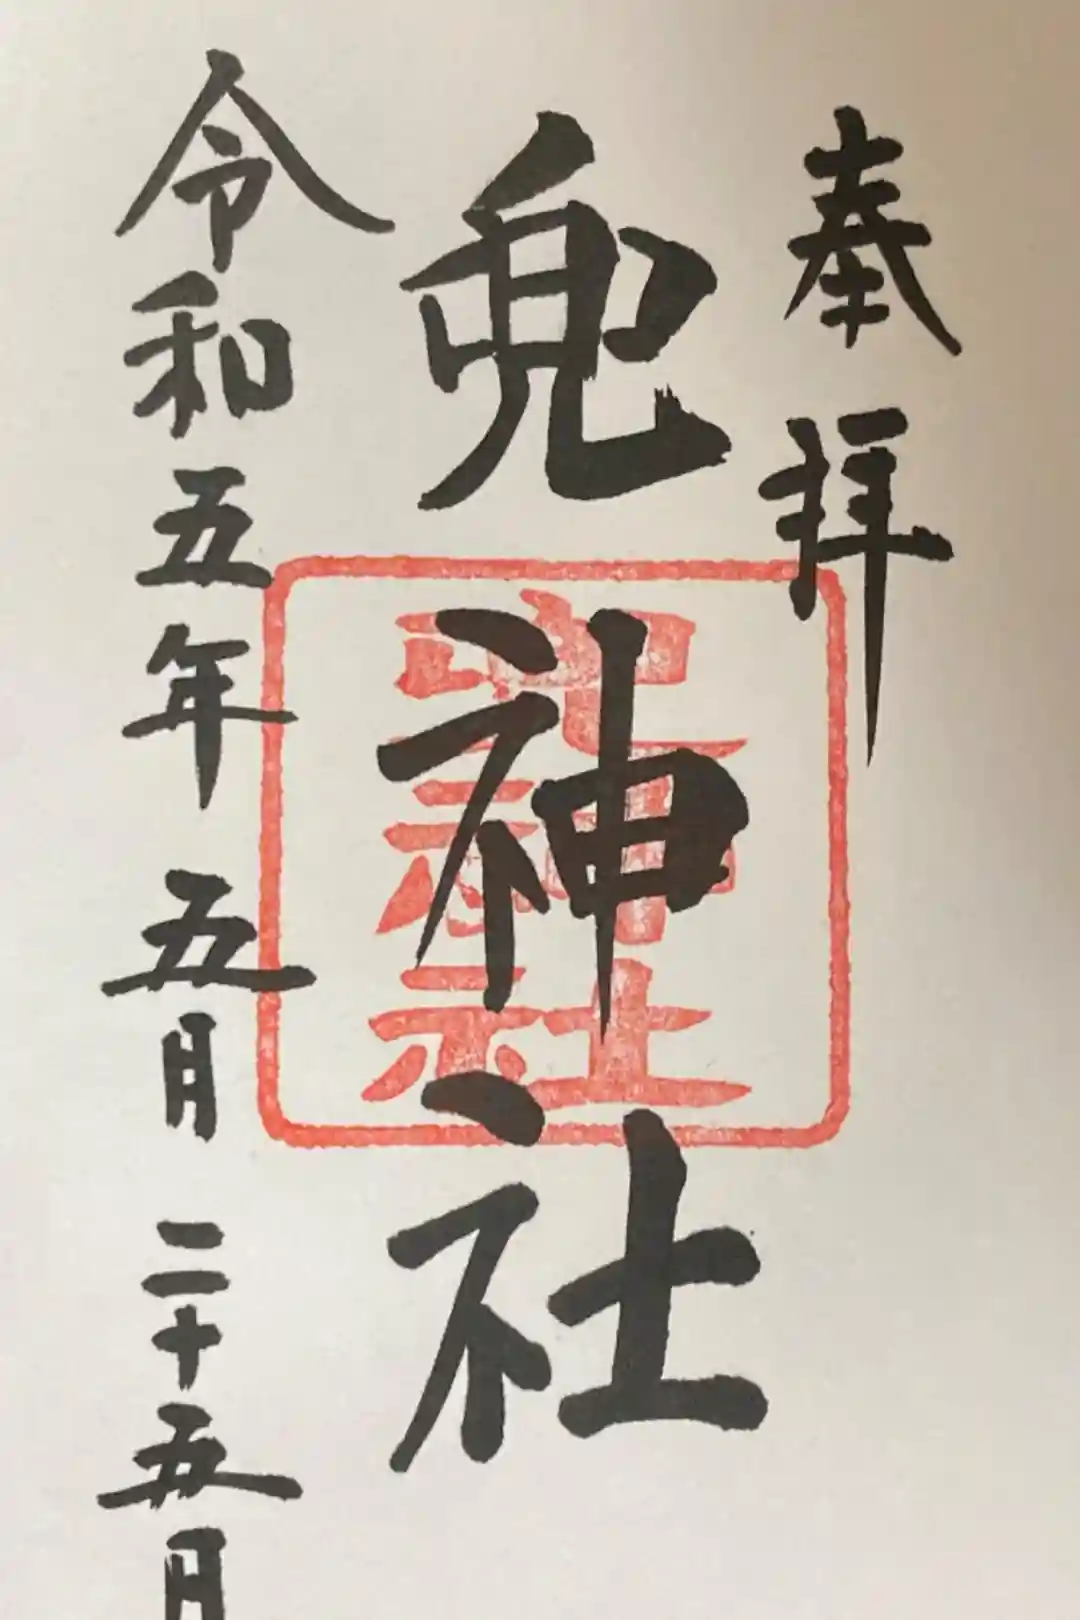 奉拝
兜神社
兜神社
令和五年 五月 二十五日